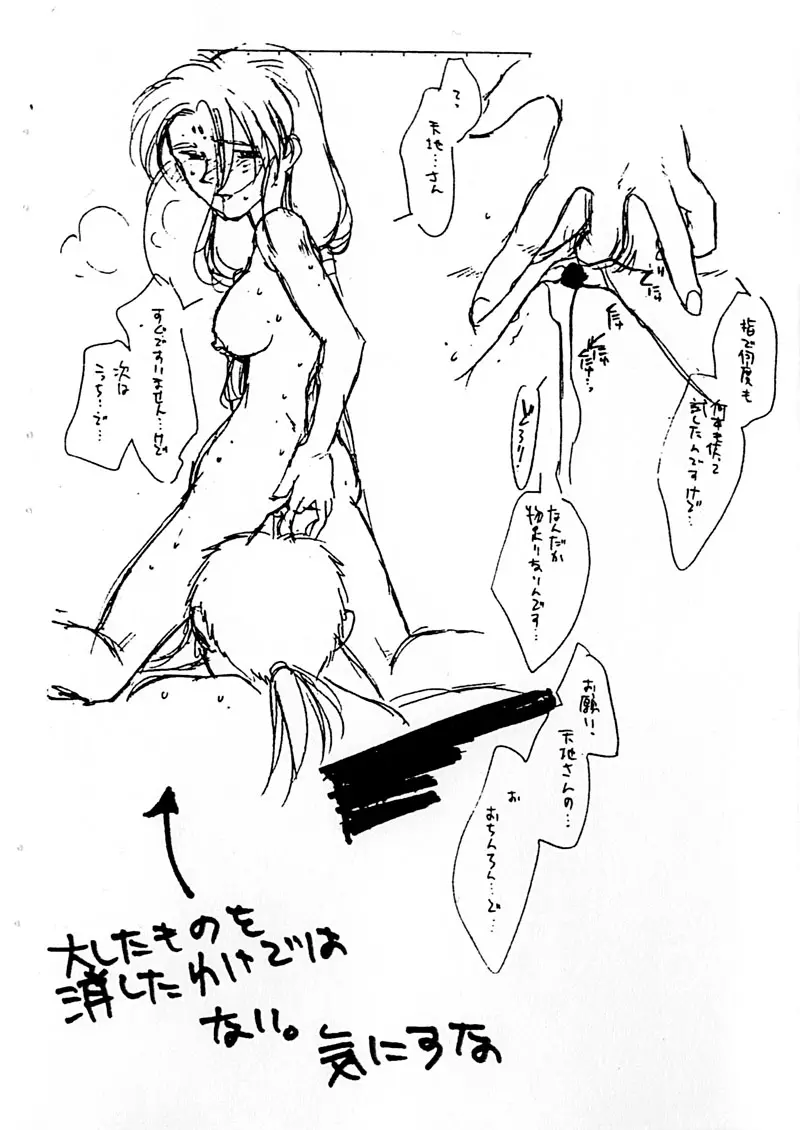 て、
天地…さん
指で何度も
何本も使って
試したんですけど…
どろり!
なんだか
物足りないんです…
すぐですいません…けど
次は
こっち…で…
お願い、
天地さんの…
お
おちんちん…で…
大したものを
消したわけでは
ない。
気にすな